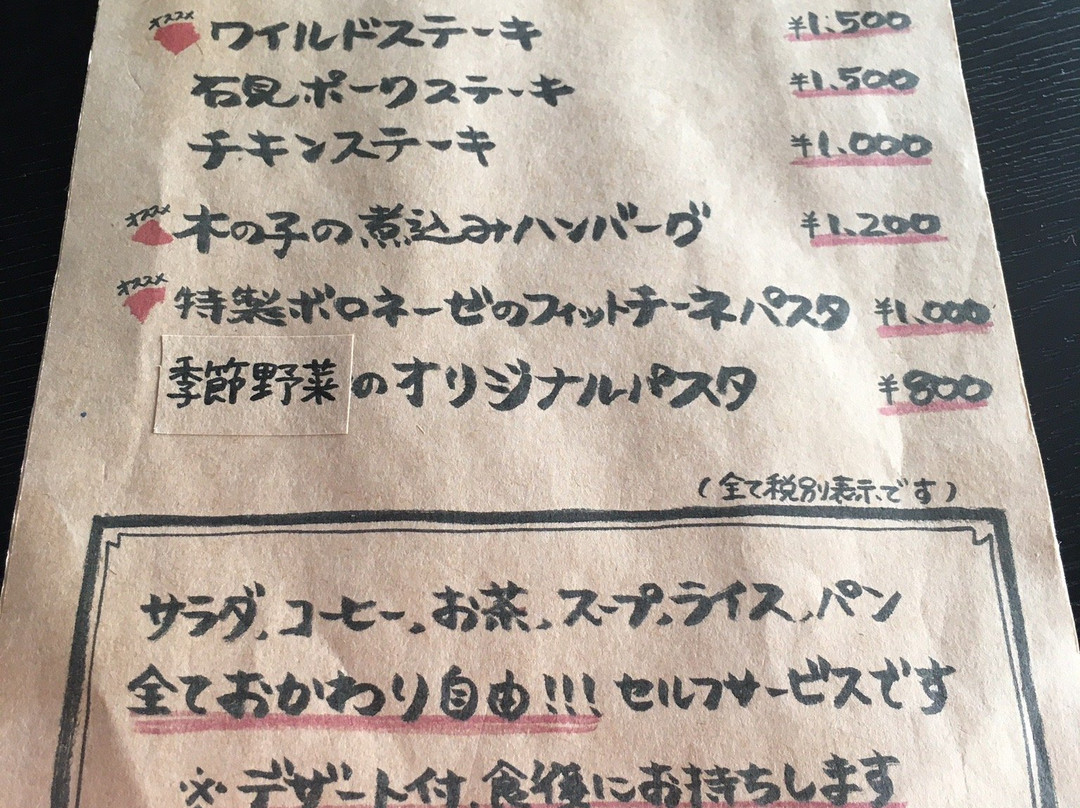 オススメ ワイルドステーキ ¥1,500
石見ポークステーキ ¥1,500
チキンステーキ ¥1,000
オススメ 木の子の煮込みハンバーグ ¥1,200
オススメ 特製ボロネーゼのフィットチーネパスタ ¥1,000
季節野菜のオリジナルパスタ ¥800
(全て税別表示です)
サラダ、コーヒー、お茶、スープ、ライス、パン
全ておかわり自由!!! セルフサービスです
※デザート付、食後にお持ちします